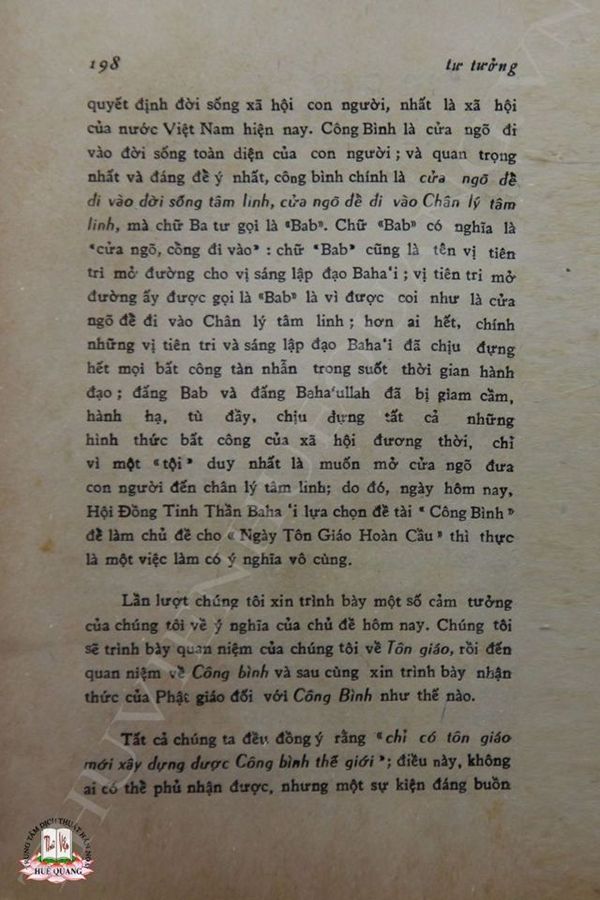 198
tư tưởng
quyết định đời sống xã hội con người, nhất là xã hội
của nước Việt Nam hiện nay. Công Bình là cửa ngõ đi
vào đời sống toàn diện của con người ; và quan trọng
nhất và đáng để ý nhất, công bình chính là cửa ngõ để
đi vào đời sống tâm linh, cửa ngõ để đi vào Chân lý tâm
linh, mà chữ Ba tư gọi là «Bab». Chữ «Bab» có nghĩa là
«cửa ngõ, cổng đi vào» : chữ «Bab» cũng là tên vị tiên
tri mở đường cho vị sáng lập đạo Baha'i ; vị tiên tri mở
đường ấy được gọi là «Bab» là vì được coi như là cửa
ngõ để đi vào Chân lý tâm linh ; hơn ai hết, chính
những vị tiên tri và sáng lập đạo Baha'i đã chịu đựng
hết mọi bất công tàn nhẫn trong suốt thời gian hành
đạo ; đấng Bab và đấng Baha'ullah đã bị giam cầm,
hành hạ, tù đầy, chịu đựng tất cả những
hình thức bất công của xã hội đương thời, chỉ
vì một «tội» duy nhất là muốn mở cửa ngõ đưa
con người đến chân lý tâm linh; do đó, ngày hôm nay,
Hội Đồng Tinh Thần Baha 'i lựa chọn đề tài « Công Bình »
để làm chủ đề cho « Ngày Tôn Giáo Hoàn Cầu » thì thực
là một việc làm có ý nghĩa vô cùng.
Lần lượt chúng tôi xin trình bày một số cảm tưởng
của chúng tôi về ý nghĩa của chủ đề hôm nay. Chúng tôi
sẽ trình bày quan niệm của chúng tôi về Tôn giáo, rồi đến
quan niệm về Công bình và sau cùng xin trình bày nhận
thức của Phật giáo đối với Công Bình như thế nào.
Tất cả chúng ta đều đồng ý rằng «chỉ có tôn giáo
mới xây dựng được Công bình thế giới »; điều này, không
ai có thể phủ nhận được, nhưng một sự kiện đáng buồn
TRUNG TÂM DỊCH THUẬT HÁN NÔM
Thư Viện
HUỆ QUANG